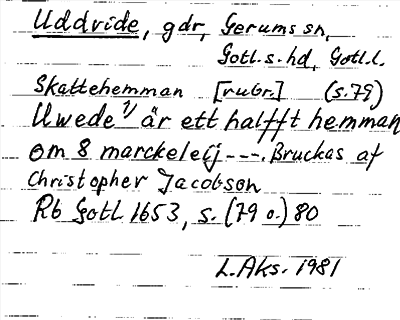 Uddvide, gdr, Gerums sn,
Gotl.s.hd, Gotl.l.
Skattehemman [rubr.] (s.79)
Uwede 1) är ett halfft hemman
om 8 marckeleij ---. Bruckas af
Christopher Jacobson
Rb Gotl 1653, s. (79 o.) 80
L.Aks. 1981